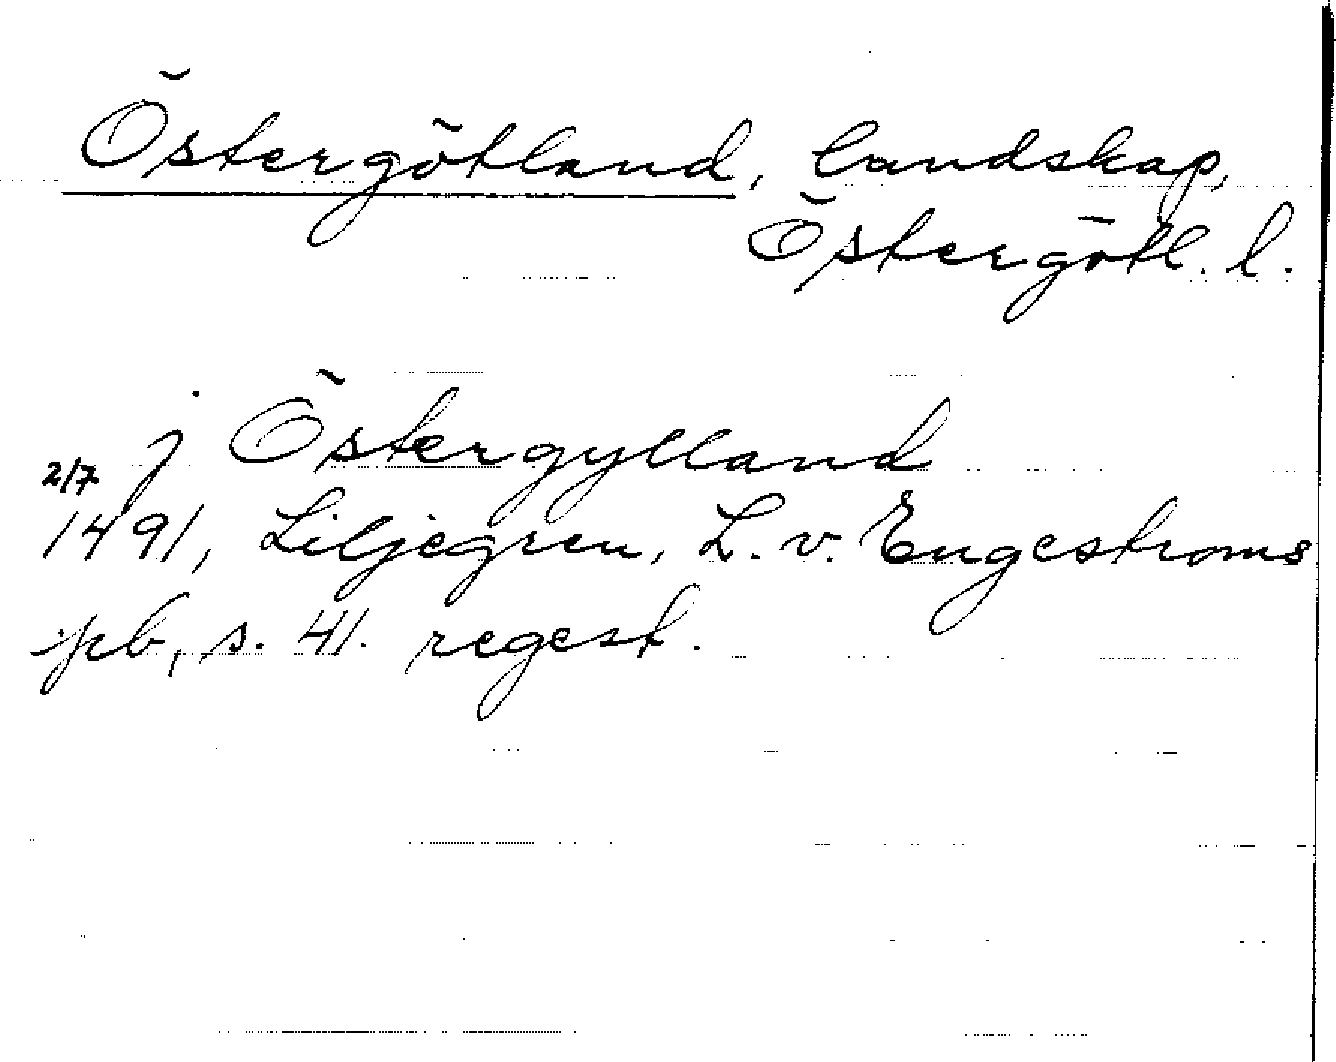 Östergötland, landskap,
Östergötl. l.
j Östergylland
2/7
1491, Liljegren, L. v. Engestroms
pb, s. 41. regest.